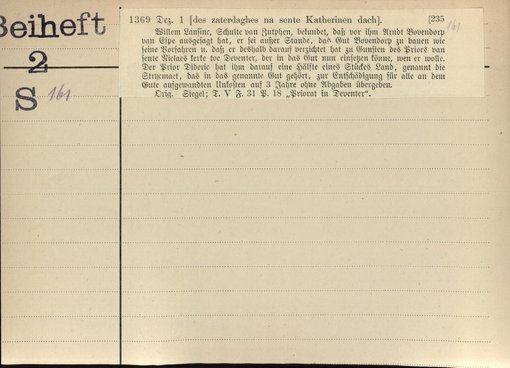 Beiheft
2
S 161
1369 Dez. 1 [des zaterdaghes na sente Katherinen dach]. [235
161
Willem Lansinc, Schulte van Zutphen, bekundet, daß vor ihm Arndt Bovendorp
van Eipe ausgesagt hat, er sei außer Stande, das Gut Bovendorp zu bauen wie
seine Vorfahren u. daß er deshalb darauf verzichtet hat zu Gunsten des Priors van
sente Niclaes kerke toe Deventer, der in das Gut nun einsetzen könne, wen er wolle.
Der Prior Dideric hat ihm darauf eine Hälfte eines Stückes Land, genannt die
Strijemaet, das in das genannte Gut gehört, zur Entschädigung für alle an dem
Gute aufgewandten Unkosten auf 3 Jahre ohne Abgaben übergeben.
Orig. Siegel; T. V F. 31 P. 18 „Priorat in Deventer“.